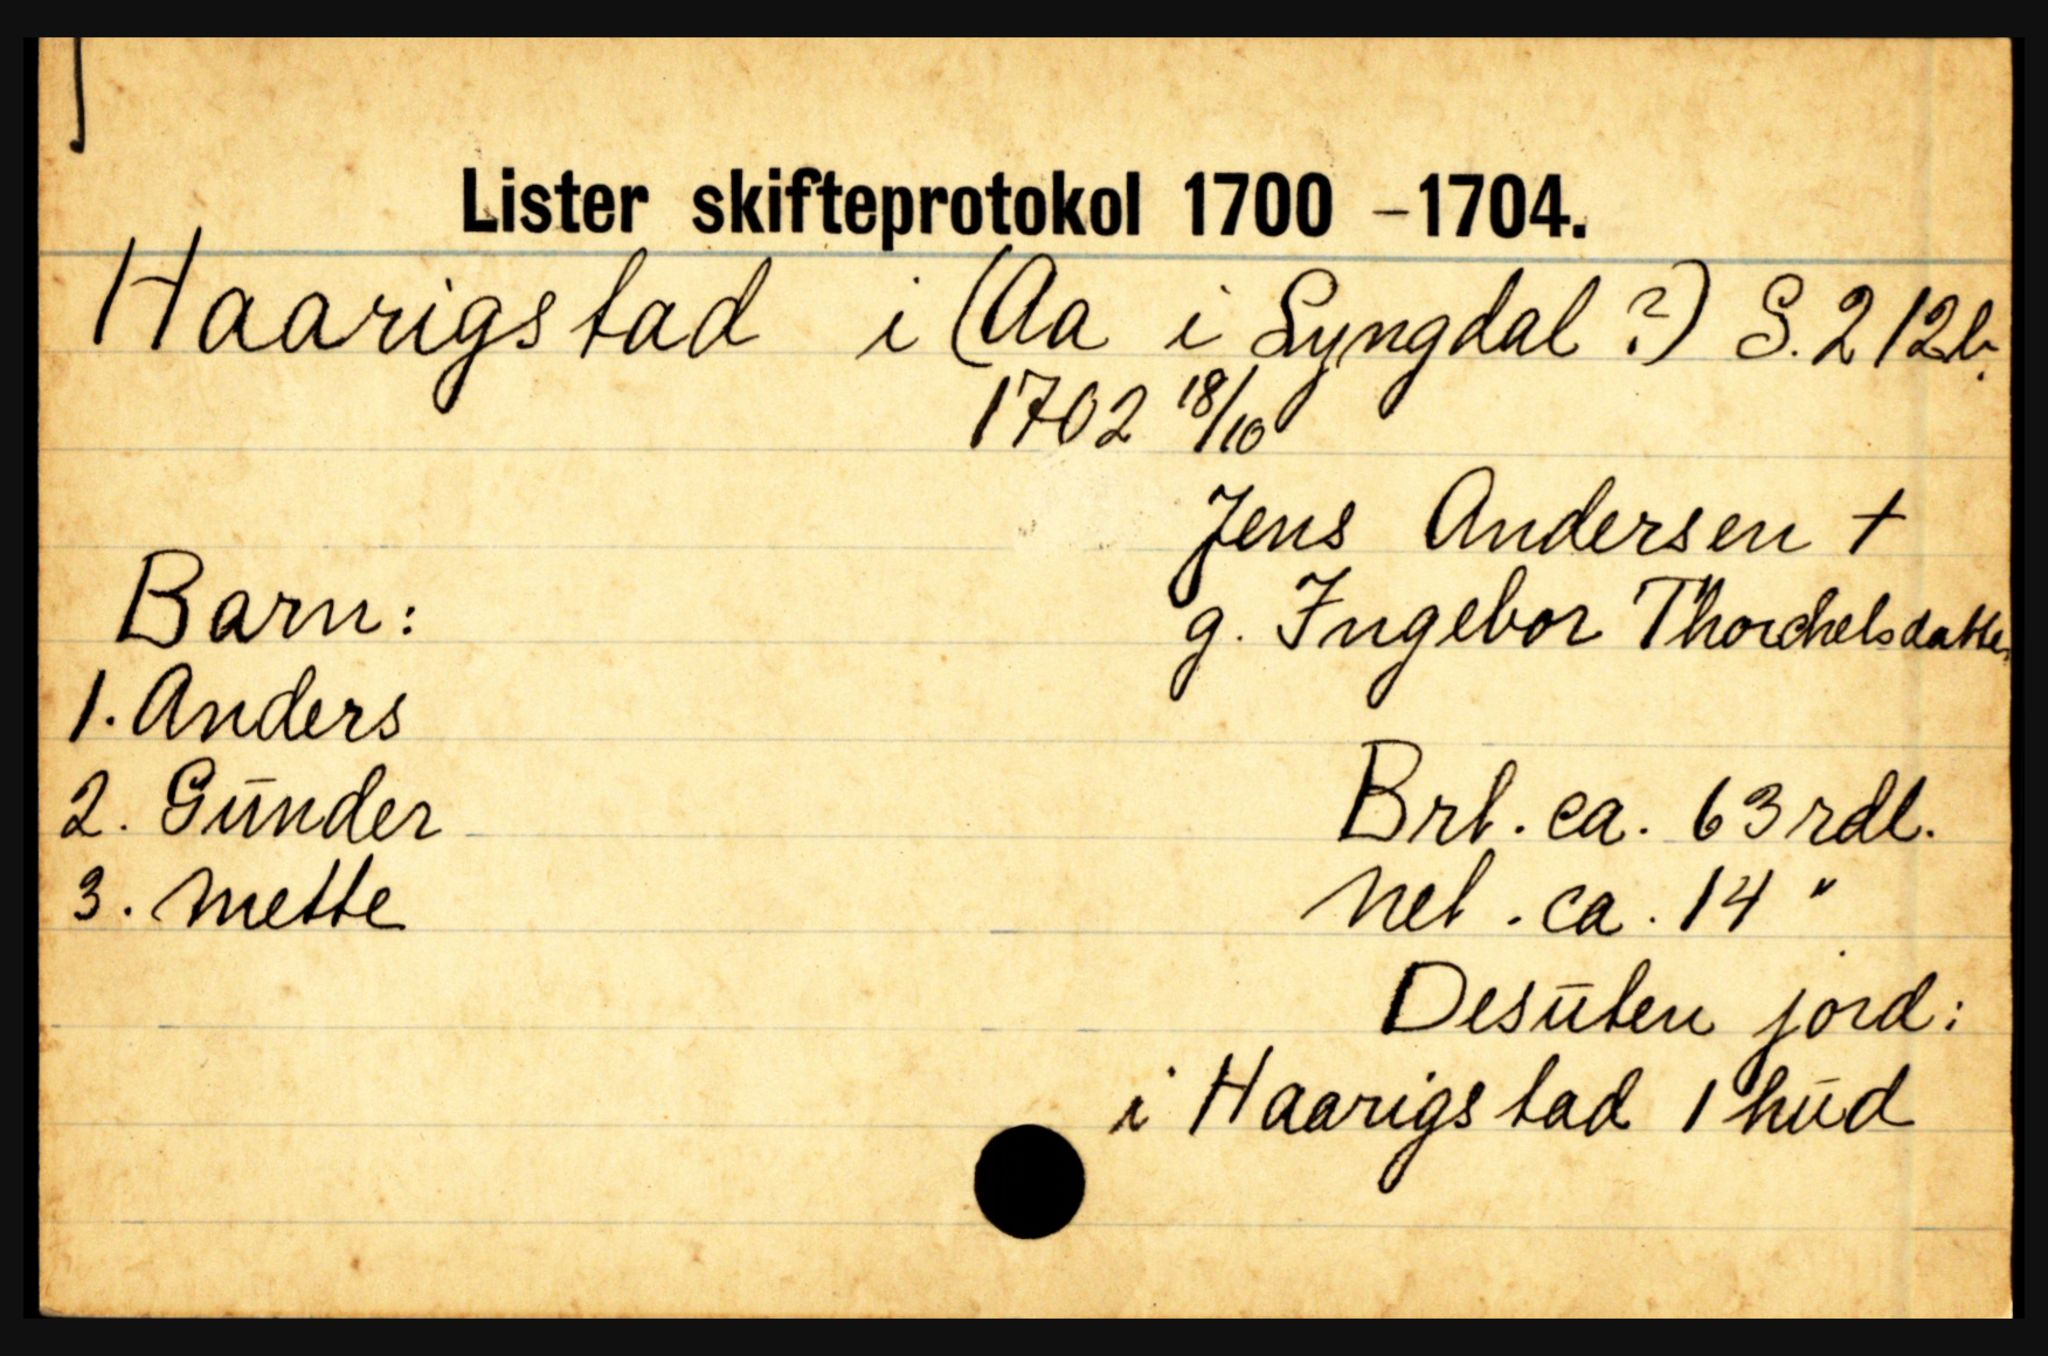 Lister skifteprotokol 1700 - 1704.
Haarigstad i (Aa i Lyngdal ?) S. 212b.
1702 18/10
Jens Andersen +
g. Ingebor Thorchelsdatter
Barn:
1. Anders
2. Gūnder
3. Mette
Brt. ca. 63 rdl.
Net. ca. 14 "
Desūten jord:
i Haarigstad 1 hūd